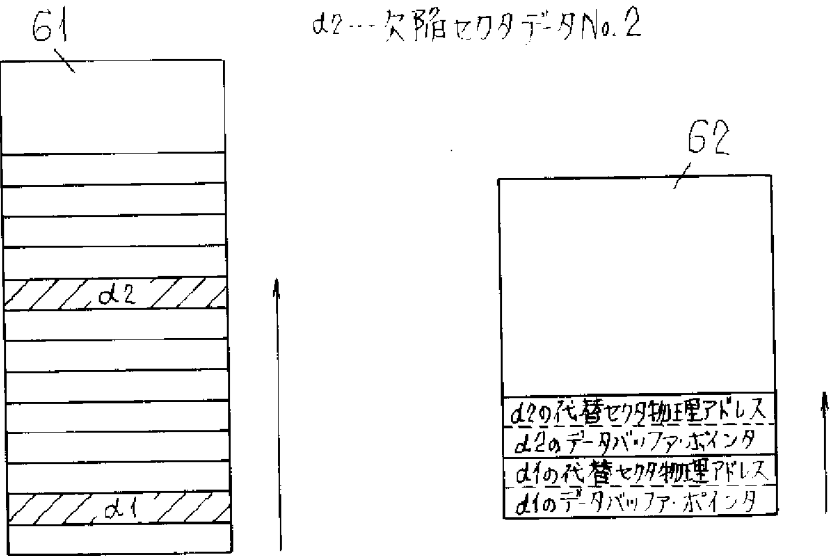 61
d2…欠陥セクタデータNo.2
62
d2
d1
d2の代替セクタ物理アドレス
d2のデータバッファ・ポインタ
d1の代替セクタ物理アドレス
d1のデータバッファ・ポインタ